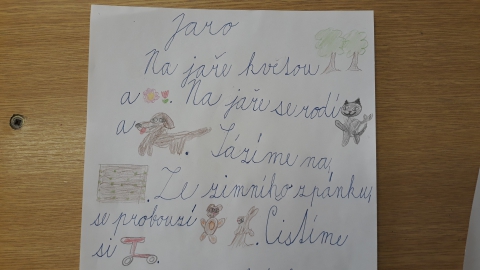 Jaro
Na jaře kvetou
a . Na jaře se rodí
a . Sázíme na
. Ze zimního spánku,
se probouzí . Čistíme
si .